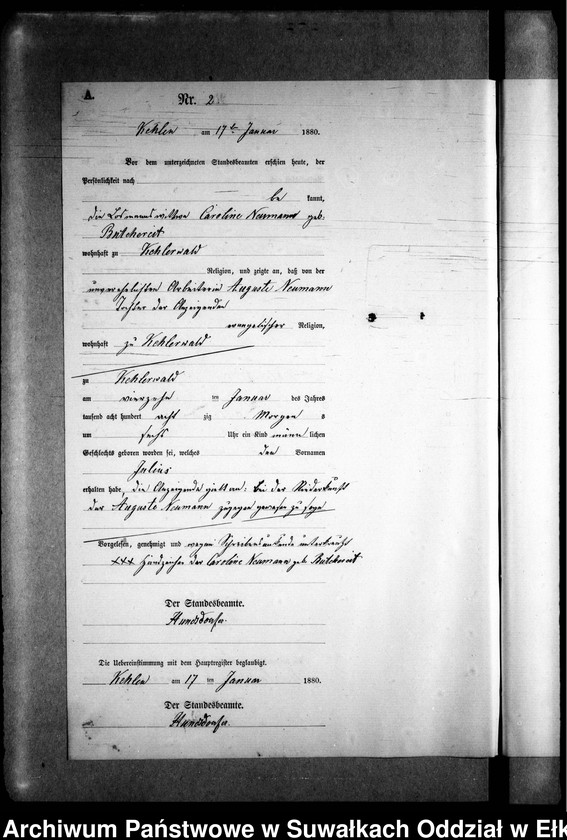 A.
Nr. 2
Kehlen am 17ten Januar 1880.
Vor dem unterzeichneten Standesbeamten erschien heute, der
Persönlichkeit nach
be kannt,
die Losmannswittwe Caroline Neumann geb.
Butchereit
wohnhaft zu Kehlerwald
Religion, und zeigte an, daß von der
unverehelichten Arbeiterin Auguste Neumann
Tochter der Anzeigenden
evangelischer Religion,
wohnhaft zu Kehlerwald
zu Kehlerwald
am vierzehn ten Januar des Jahres
tausend acht hundert acht zig Morgens
um sechs Uhr ein Kind männ lichen
Geschlechts geboren worden sei, welches den Vornamen
Julius
erhalten habe, die Anzeigende giebt an: bei der Niederkunft
der Auguste Neumann zugegen gewesen zu sein
Vorgelesen, genehmigt und wegen Schreibensunkunde unterkreuzt
+++ Handzeichen der Caroline Neumann geb. Butchereit
Der Standesbeamte.
Die Uebereinstimmung mit dem Hauptregister beglaubigt.
Kehlen am 17 ten Januar 1880.
Der Standesbeamte.
Archiwum Państwowe w Suwałkach Oddział w Ełk